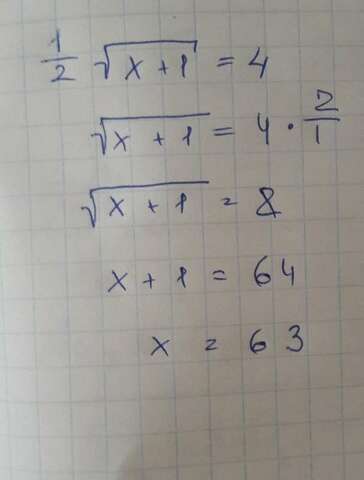 1/2 √(x + 1) = 4
√(x + 1) = 4 · 2/1
√(x + 1) = 8
x + 1 = 64
x = 63